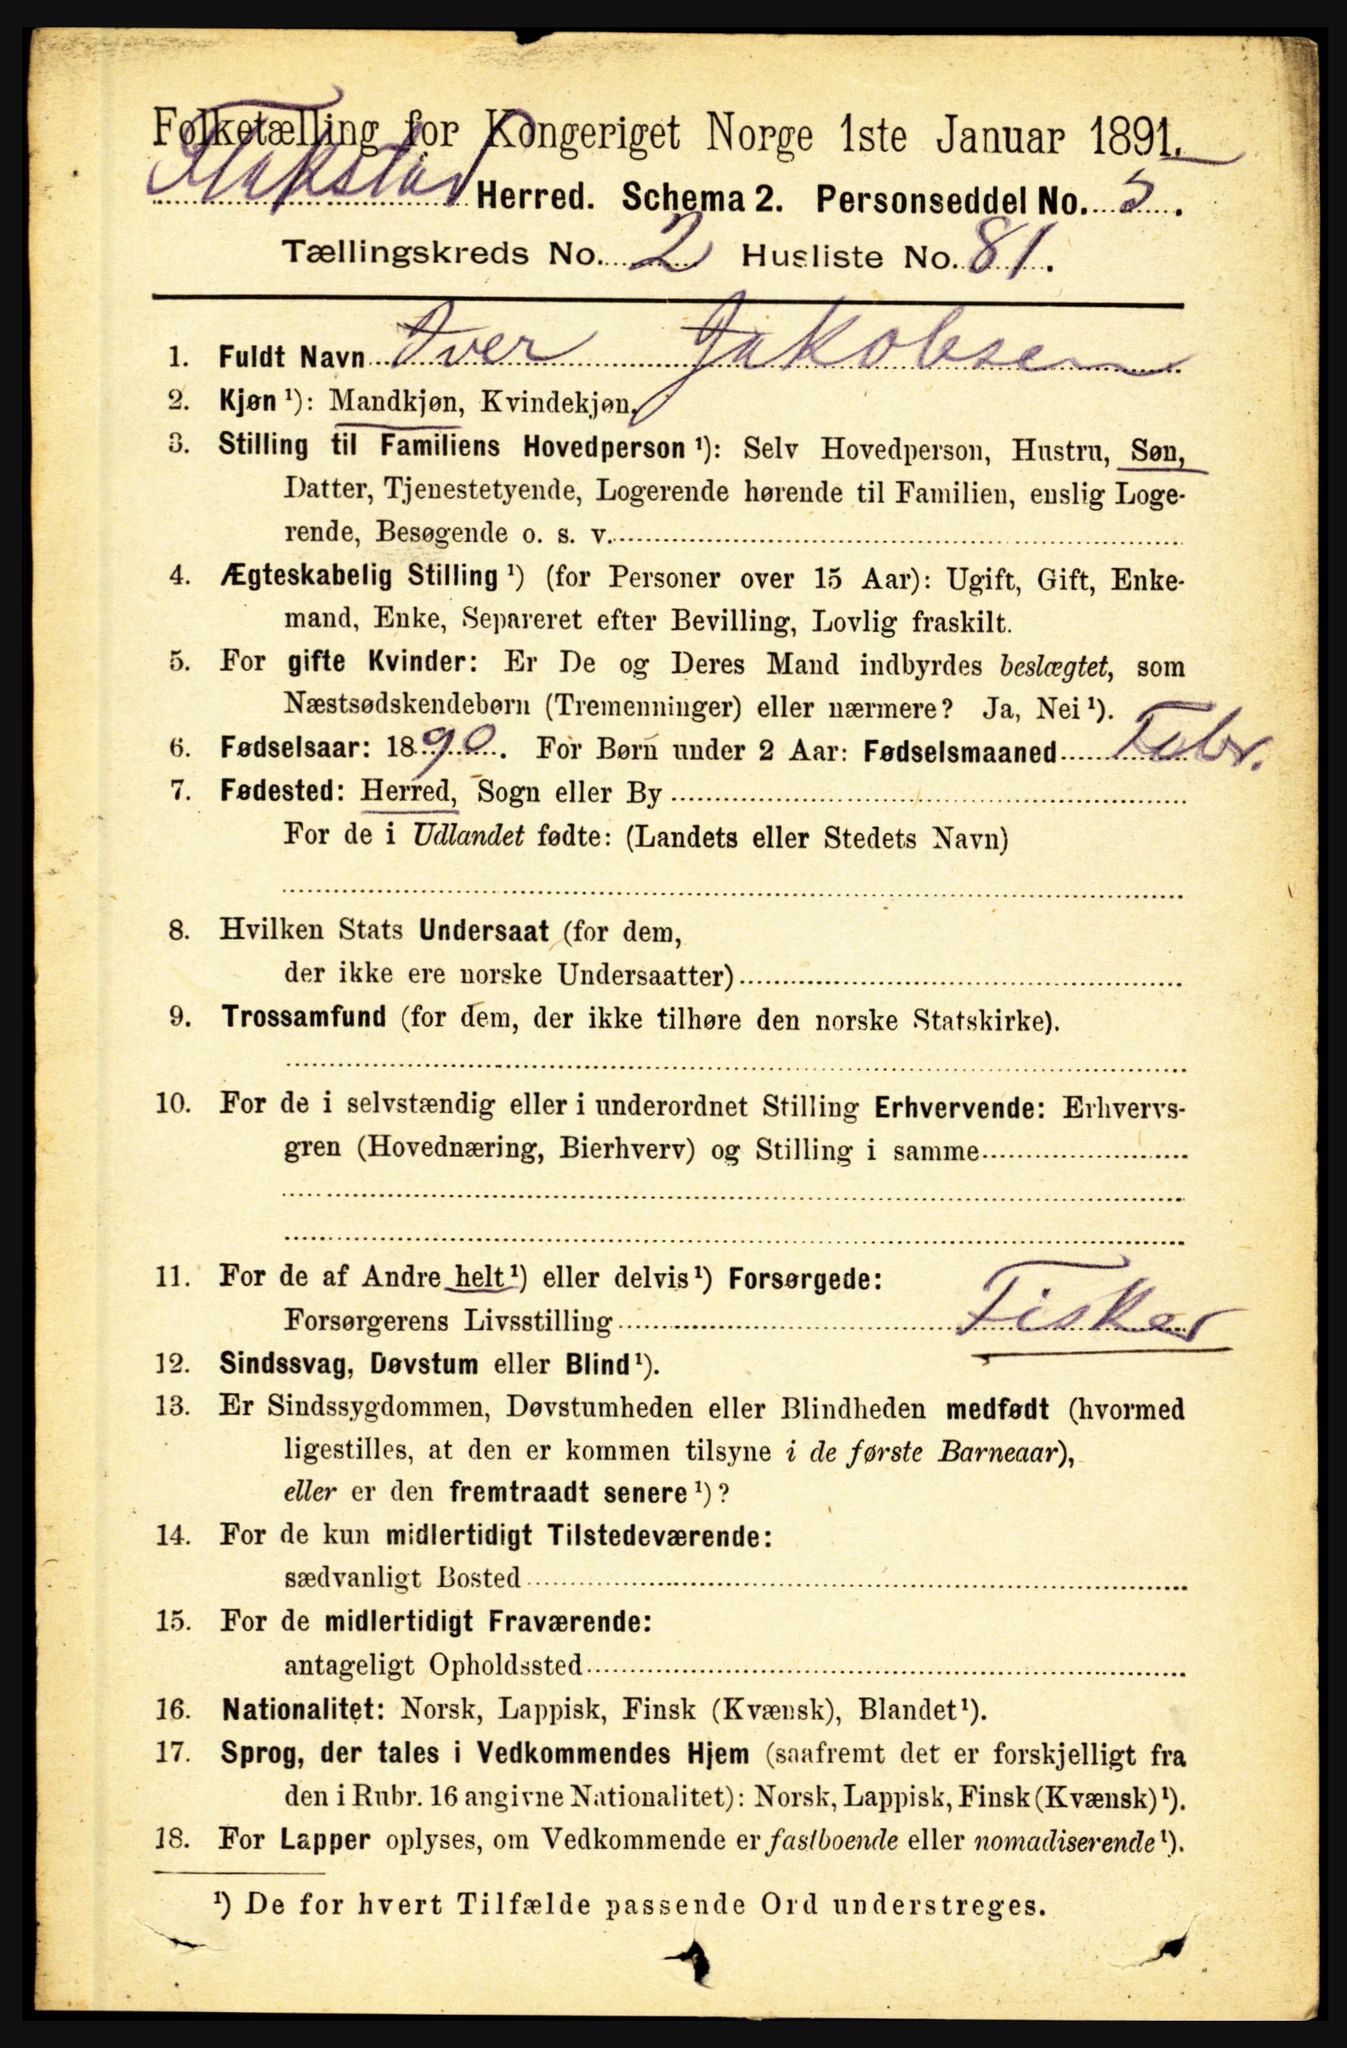 Folketælling for Kongeriget Norge 1ste Januar 1891.
Flakstad Herred. Schema 2. Personseddel No. 5.
Tællingskreds No. 2 Husliste No. 81.
1. Fuldt Navn Iver Jakobsen
2. Kjøn ¹): Mandkjøn, Kvindekjøn.
3. Stilling til Familiens Hovedperson ¹): Selv Hovedperson, Hustru, Søn,
Datter, Tjenestetyende, Logerende hørende til Familien, enslig Loge-
rende, Besøgende o. s. v.
4. Ægteskabelig Stilling ¹) (for Personer over 15 Aar): Ugift, Gift, Enke-
mand, Enke, Separeret efter Bevilling, Lovlig fraskilt.
5. For gifte Kvinder: Er De og Deres Mand indbyrdes beslægtet, som
Næstsødskendebørn (Tremenninger) eller nærmere? Ja, Nei ¹).
6. Fødselsaar: 1890. For Børn under 2 Aar: Fødselsmaaned Febr.
7. Fødested: Herred, Sogn eller By
For de i Udlandet fødte: (Landets eller Stedets Navn)
8. Hvilken Stats Undersaat (for dem,
der ikke ere norske Undersaatter)
9. Trossamfund (for dem, der ikke tilhøre den norske Statskirke).
10. For de i selvstændig eller i underordnet Stilling Erhvervende: Erhvervs-
gren (Hovednæring, Bierhverv) og Stilling i samme
11. For de af Andre helt ¹) eller delvis ¹) Forsørgede:
Forsørgerens Livsstilling Fisker
12. Sindssvag, Døvstum eller Blind ¹).
13. Er Sindssygdommen, Døvstumheden eller Blindheden medfødt (hvormed
ligestilles, at den er kommen tilsyne i de første Barneaar),
eller er den fremtraadt senere ¹)?
14. For de kun midlertidigt Tilstedeværende:
sædvanligt Bosted
15. For de midlertidigt Fraværende:
antageligt Opholdssted
16. Nationalitet: Norsk, Lappisk, Finsk (Kvænsk), Blandet ¹).
17. Sprog, der tales i Vedkommendes Hjem (saafremt det er forskjelligt fra
den i Rubr. 16 angivne Nationalitet): Norsk, Lappisk, Finsk (Kvænsk) ¹).
18. For Lapper oplyses, om Vedkommende er fastboende eller nomadiserende ¹).
¹) De for hvert Tilfælde passende Ord understreges.